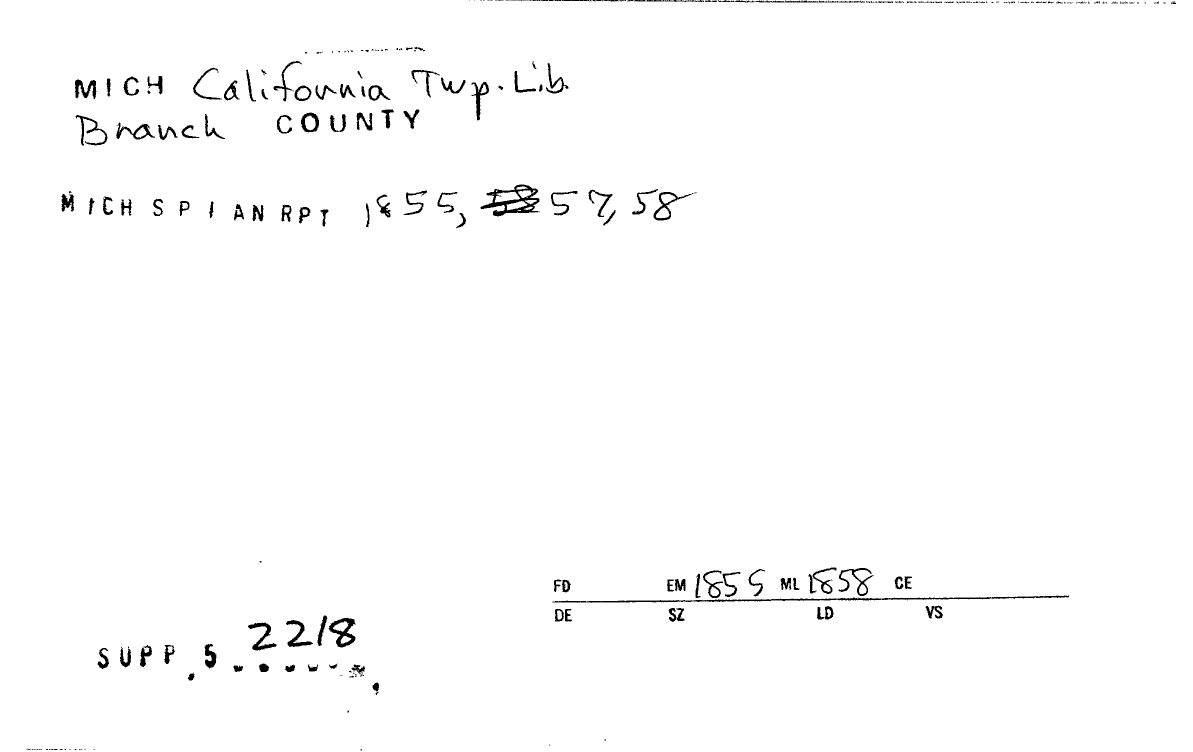 MICH California Twp. Lib.
Branch COUNTY
MICH SPI AN RPT 1855, 57, 58
FD EM 1855 ML 1858 CE
DE SZ LD VS
SUPP.5 2218